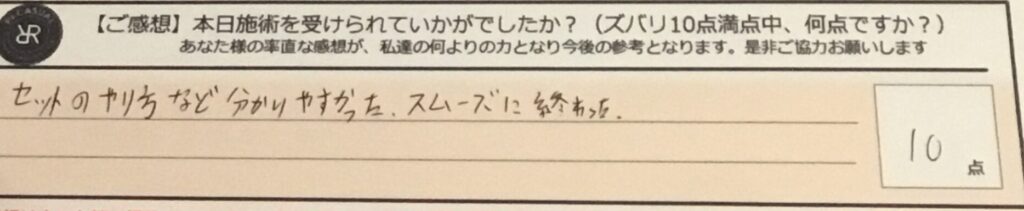 【ご感想】本日施術を受けられていかがでしたか？（ズバリ10点満点中、何点ですか？）
あなた様の率直な感想が、私達の何よりの力となり今後の参考となります。是非ご協力お願いします
セットのやり方など分かりやすかった、スムーズに終わった。
10
点